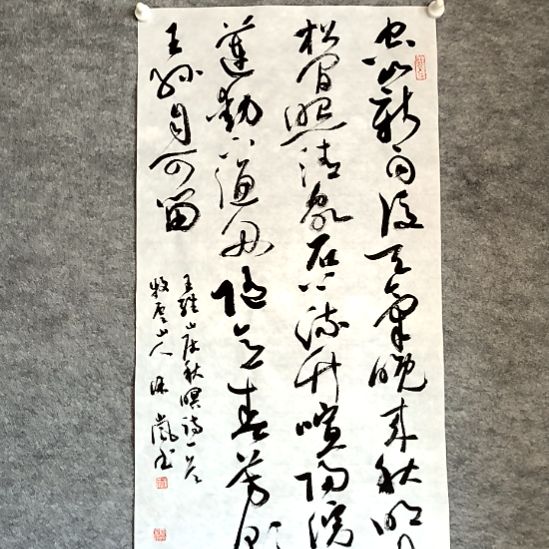 空山新雨后天气晚来秋明月
松间照清泉石上流竹喧归浣
莲动下渔舟随意春芳歇
王孙自可留
王维山居秋暝诗一首
牧云山人 岚书